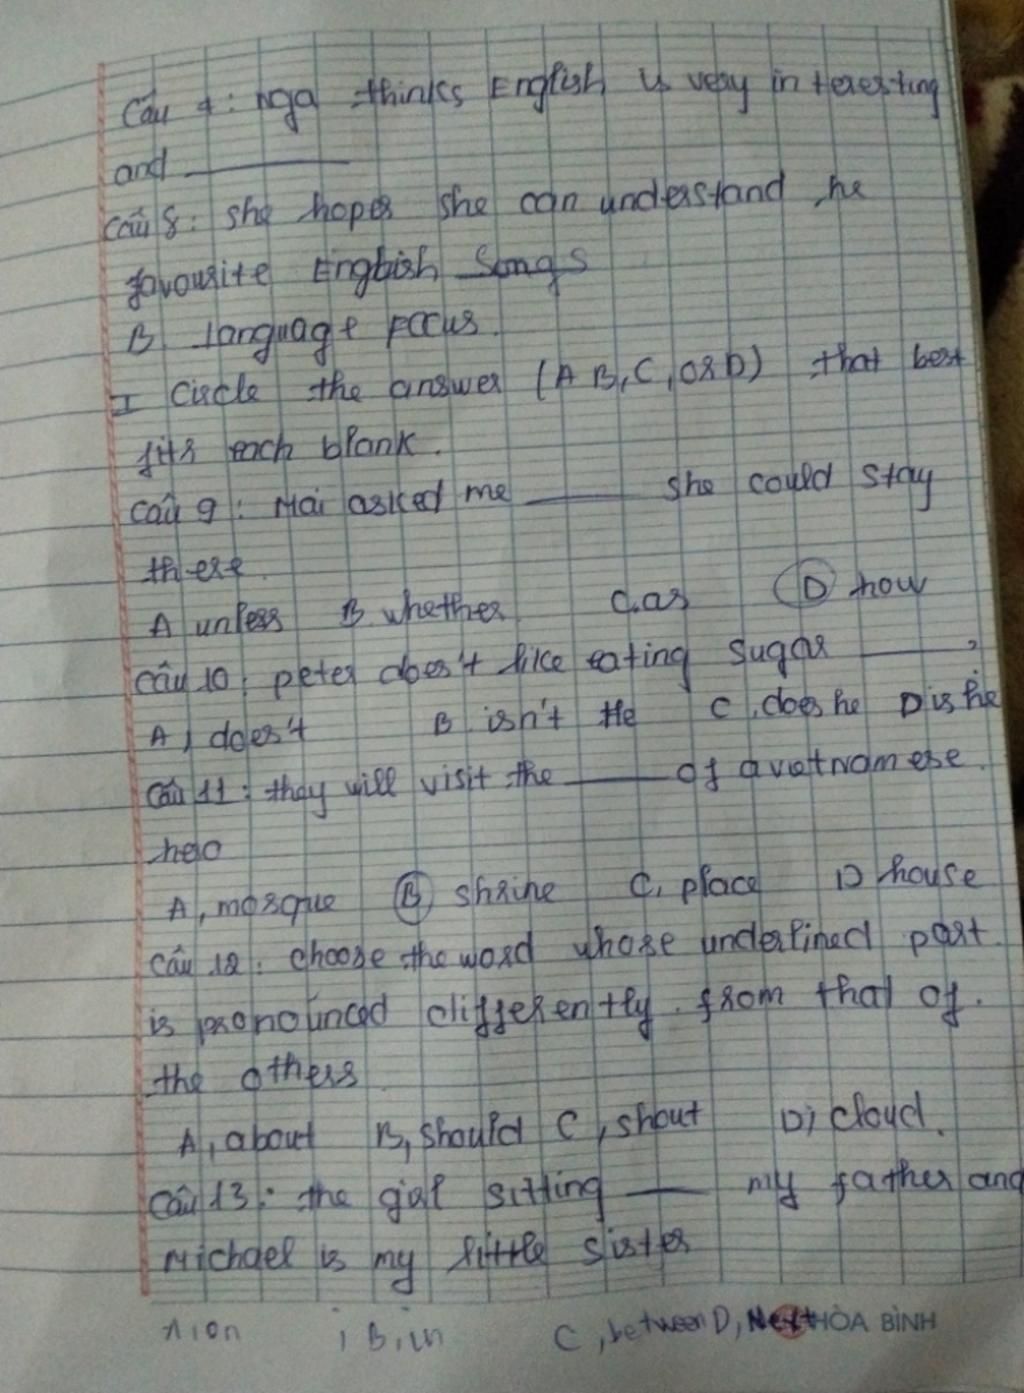 Câu 7: nga thinks English is very interesting
and ______
Câu 8: she hopes she can understand he
favourite English Songs
B language focus.
I Circle the answer (A B, C, OR D) that best
fits each blank.
Câu 9: Mai asked me ______ she could stay
there
A unless B whether C. as D how
Câu 10, peter does't like eating sugar ______,
A, does't B isn't He C, does he D is he
Câu 11: they will visit the ______ of a vietnamese.
hero
A, mosque B shrine C, place D house
Câu 12: choose the word whose underlined part.
is pronounced differently from that of.
the others
A, about B, should C, shout D, cloud.
Câu 13: the girl sitting ______ my father and
Michael is my little sister
A, on B, in C, between D, Next HÒA BÌNH